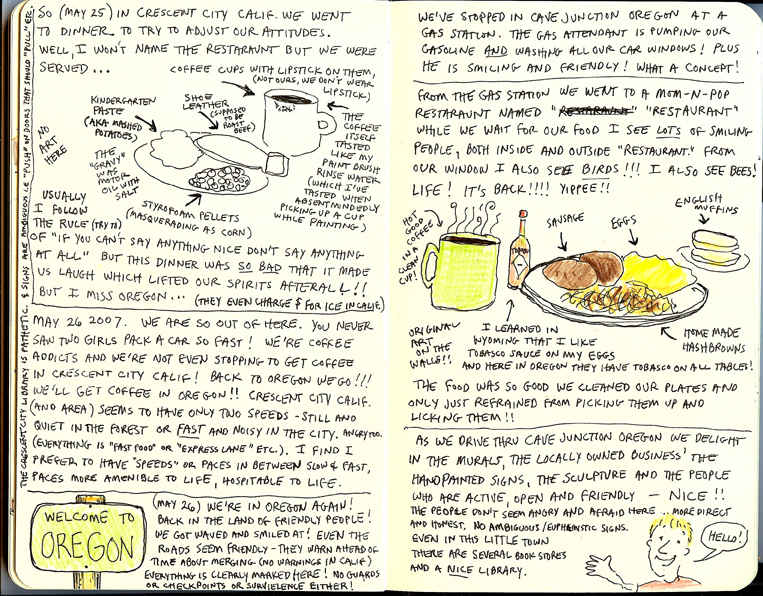 SO (MAY 25) IN CRESCENT CITY CALIF. WE WENT
TO DINNER TO TRY TO ADJUST OUR ATTITUDES.
WELL, I WON'T NAME THE RESTARAUNT BUT WE WERE
SERVED...
COFFEE CUPS WITH LIPSTICK ON THEM,
(NOT OURS, WE DON'T WEAR
LIPSTICK)
KINDERGARTEN
PASTE
(AKA MASHED
POTATOES)
SHOE
LEATHER
(SUPPOSED TO
BE ROAST
BEEF)
THE
COFFEE
ITSELF
TASTED
LIKE MY
PAINT BRUSH
RINSE WATER
(WHICH I'VE
TASTED WHEN
ABSENTMINDEDLY
PICKING UP A CUP
WHILE PAINTING)
NO
ART
HERE
THE
"GRAVY"
WAS
MOTOR
OIL WITH
SALT
STYROFOAM PELLETS
(MASQUERADING AS CORN)
USUALLY
I FOLLOW
THE RULE (TRY TO)
OF "IF YOU CAN'T SAY ANYTHING NICE DON'T SAY ANYTHING
AT ALL" BUT THIS DINNER WAS SO BAD THAT IT MADE
US LAUGH WHICH LIFTED OUR SPIRITS AFTERALL!!
BUT I MISS OREGON... (THEY EVEN CHARGE $ FOR ICE IN CALIF.)
MAY 26 2007. WE ARE SO OUT OF HERE. YOU NEVER
SAW TWO GIRLS PACK A CAR SO FAST! WE'RE COFFEE
ADDICTS AND WE'RE NOT EVEN STOPPING TO GET COFFEE
IN CRESCENT CITY CALIF! BACK TO OREGON WE GO!!!
WE'LL GET COFFEE IN OREGON!! CRESCENT CITY CALIF.
(AND AREA) SEEMS TO HAVE ONLY TWO SPEEDS - STILL AND
QUIET IN THE FOREST OR FAST AND NOISY IN THE CITY. ANGRY TOO.
(EVERYTHING IS "FAST FOOD" OR "EXPRESS LANE" ETC.). I FIND I
PREFER TO HAVE 'SPEEDS' OR PACES IN BETWEEN SLOW & FAST,
PACES MORE AMENIBLE TO LIFE, HOSPITABLE TO LIFE.
THE CRESCENT CITY LIBRARY IS PATHETIC. & SIGNS ARE AMBIGUOUS I.E "PUSH" ON DOORS THAT SHOULD "PULL" ETC.
WELCOME TO
OREGON
(MAY 26) WE'RE IN OREGON AGAIN!
BACK IN THE LAND OF FRIENDLY PEOPLE!
WE GOT WAVED AND SMILED AT! EVEN THE
ROADS SEEM FRIENDLY - THEY WARN AHEAD OF
TIME ABOUT MERGING (NO WARNINGS IN CALIF)
EVERYTHING IS CLEARLY MARKED HERE! NO GUARDS
OR CHECKPOINTS OR SURVIELENCE EITHER!
WE'VE STOPPED IN CAVE JUNCTION OREGON AT A
GAS STATION. THE GAS ATTENDANT IS PUMPING OUR
GASOLINE AND WASHING ALL OUR CAR WINDOWS! PLUS
HE IS SMILING AND FRIENDLY! WHAT A CONCEPT!
FROM THE GAS STATION WE WENT TO A MOM-N-POP
RESTARAUNT NAMED "RESTARAUNT" "RESTAURANT"
WHILE WE WAIT FOR OUR FOOD I SEE LOTS OF SMILING
PEOPLE, BOTH INSIDE AND OUTSIDE "RESTAURANT." FROM
OUR WINDOW I ALSO SEE BIRDS!!! I ALSO SEE BEES!
LIFE! IT'S BACK!!!! YIPPEE!!
HOT
GOOD
COFFEE
IN A
CLEAN
CUP!
SAUSAGE
EGGS
ENGLISH
MUFFINS
ORIGINAL
ART
ON THE
WALLS!!
I LEARNED IN
WYOMING THAT I LIKE
TOBASCO SAUCE ON MY EGGS
AND HERE IN OREGON THEY HAVE TOBASCO ON ALL TABLES!
HOME MADE
HASHBROWNS
THE FOOD WAS SO GOOD WE CLEANED OUR PLATES AND
ONLY JUST REFRAINED FROM PICKING THEM UP AND
LICKING THEM!!
AS WE DRIVE THRU CAVE JUNCTION OREGON WE DELIGHT
IN THE MURALS, THE LOCALLY OWNED BUSINESS' THE
HANDPAINTED SIGNS, THE SCULPTURE AND THE PEOPLE
WHO ARE ACTIVE, OPEN AND FRIENDLY — NICE!!
THE PEOPLE DON'T SEEM ANGRY AND AFRAID HERE... MORE DIRECT
AND HONEST, NO AMBIGUOUS/EUPHEMISTIC SIGNS.
EVEN IN THIS LITTLE TOWN
THERE ARE SEVERAL BOOK STORES
AND A NICE LIBRARY.
HELLO!